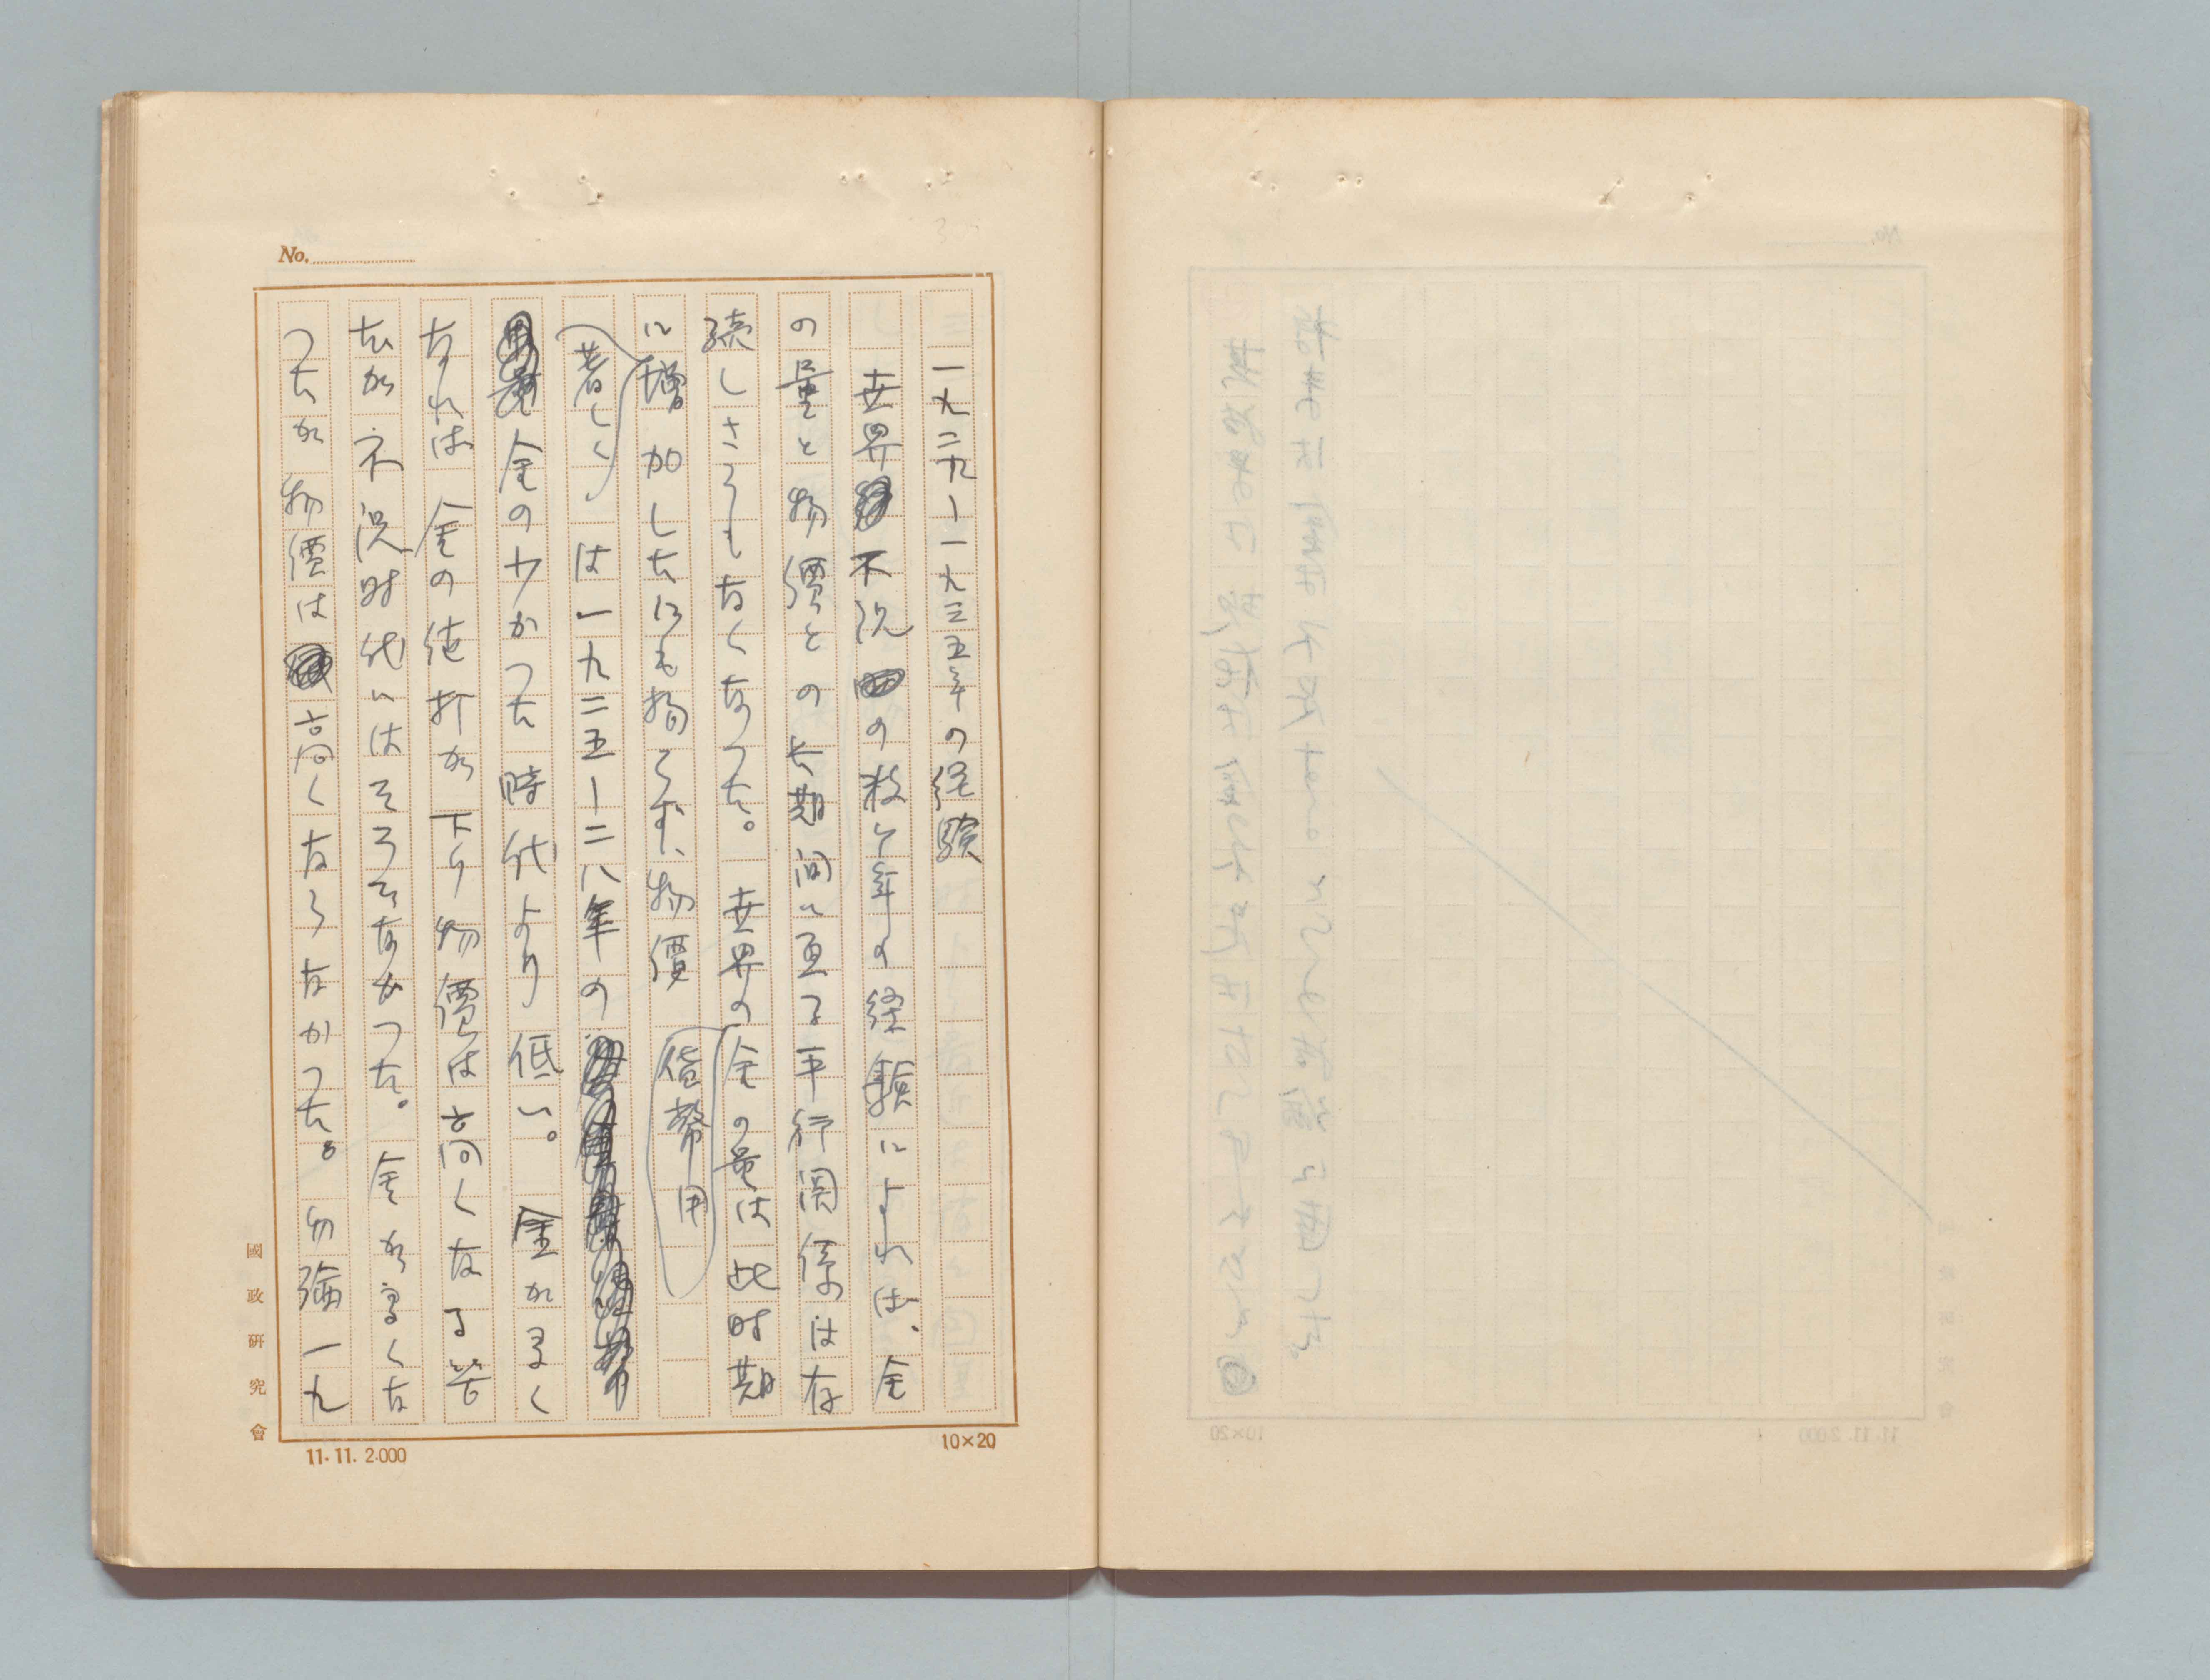 No.
一九二九―一九三五年の経験
世界不況の数ヶ年の経験によれば、金
の量と物價との長期間に亙る平行関係は存
続しさうもなくなつた。世界の金の量は此时期
に増加したにも拘らず、物價(貨幣用
(著しく)は一九二五―二八年の
金の少かつた時代より低い。金が多く
なれば金の値打が下り物價は高くなる筈
だが不況时代にはそうでなかつた。金が多くな
つたが物價は高くならなかつた。勿論一九
國政研究會
11.11.2.000
10×20